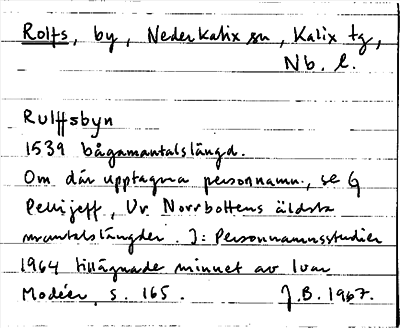 Rolfs, by, Nederkalix sn, Kalix tg,
Nb. l.
Rulffsbyn
1539 bågamantalslängd.
Om där upptagna personnamn, se G
Pellijeff, Ur Norrbottens äldsta
mantalslängder. I: Personnamnsstudier
1964 tillägnade minnet av Ivar
Modéer, s. 165. J.B. 1967.